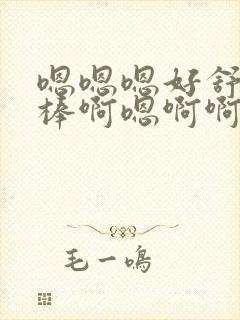 嗯嗯嗯好舒
棒啊嗯啊啊
毛一鸣